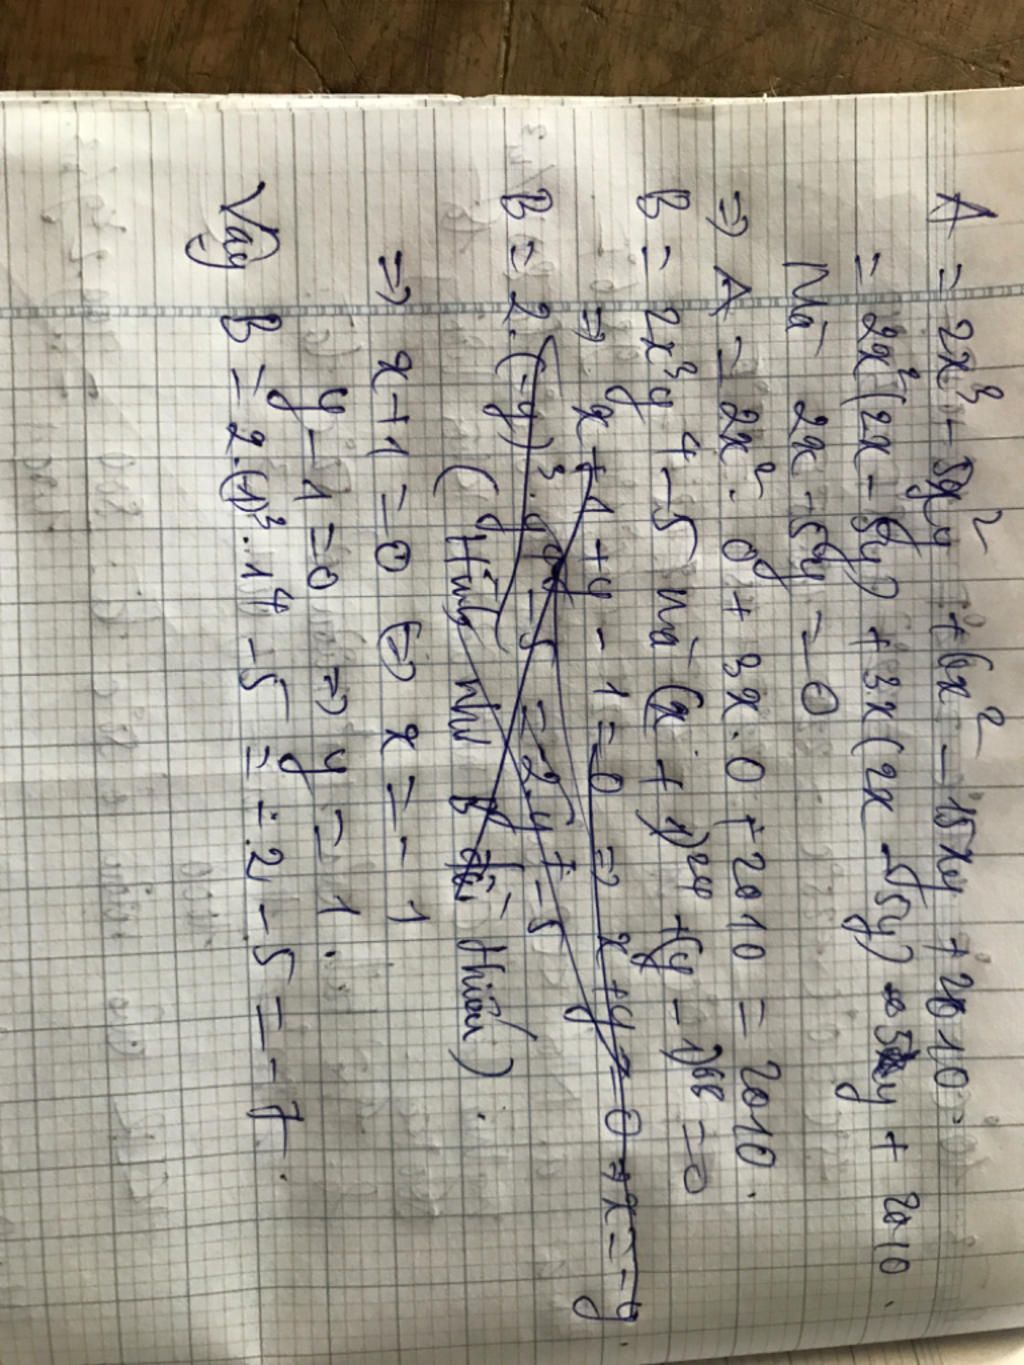 A = 2x³ - 5x²y + 6x² - 15xy + 2010.
= 2x²(2x - 5y) + 3x(2x - 5y) + 2010.
Mà 2x - 5y = 0
⇒ A = 2x². 0 + 3x. 0 + 2010 = 2010.
B = 2x³y⁴ - 5 mà (x + 1)²⁴ + (y - 1)⁶⁸ = 0
⇒ x + 1 + y - 1 = 0 ⇒ x + y = 0 ⇒ x = -y
B = 2.(-y)³.y⁴ - 5 = -2.y⁷ - 5
(Hình như B đề thiếu).
⇒ x + 1 = 0 ⇔ x = -1
y - 1 = 0 ⇒ y = 1.
Vậy B = 2.(-1)³.1⁴ - 5 = -2 - 5 = -7.